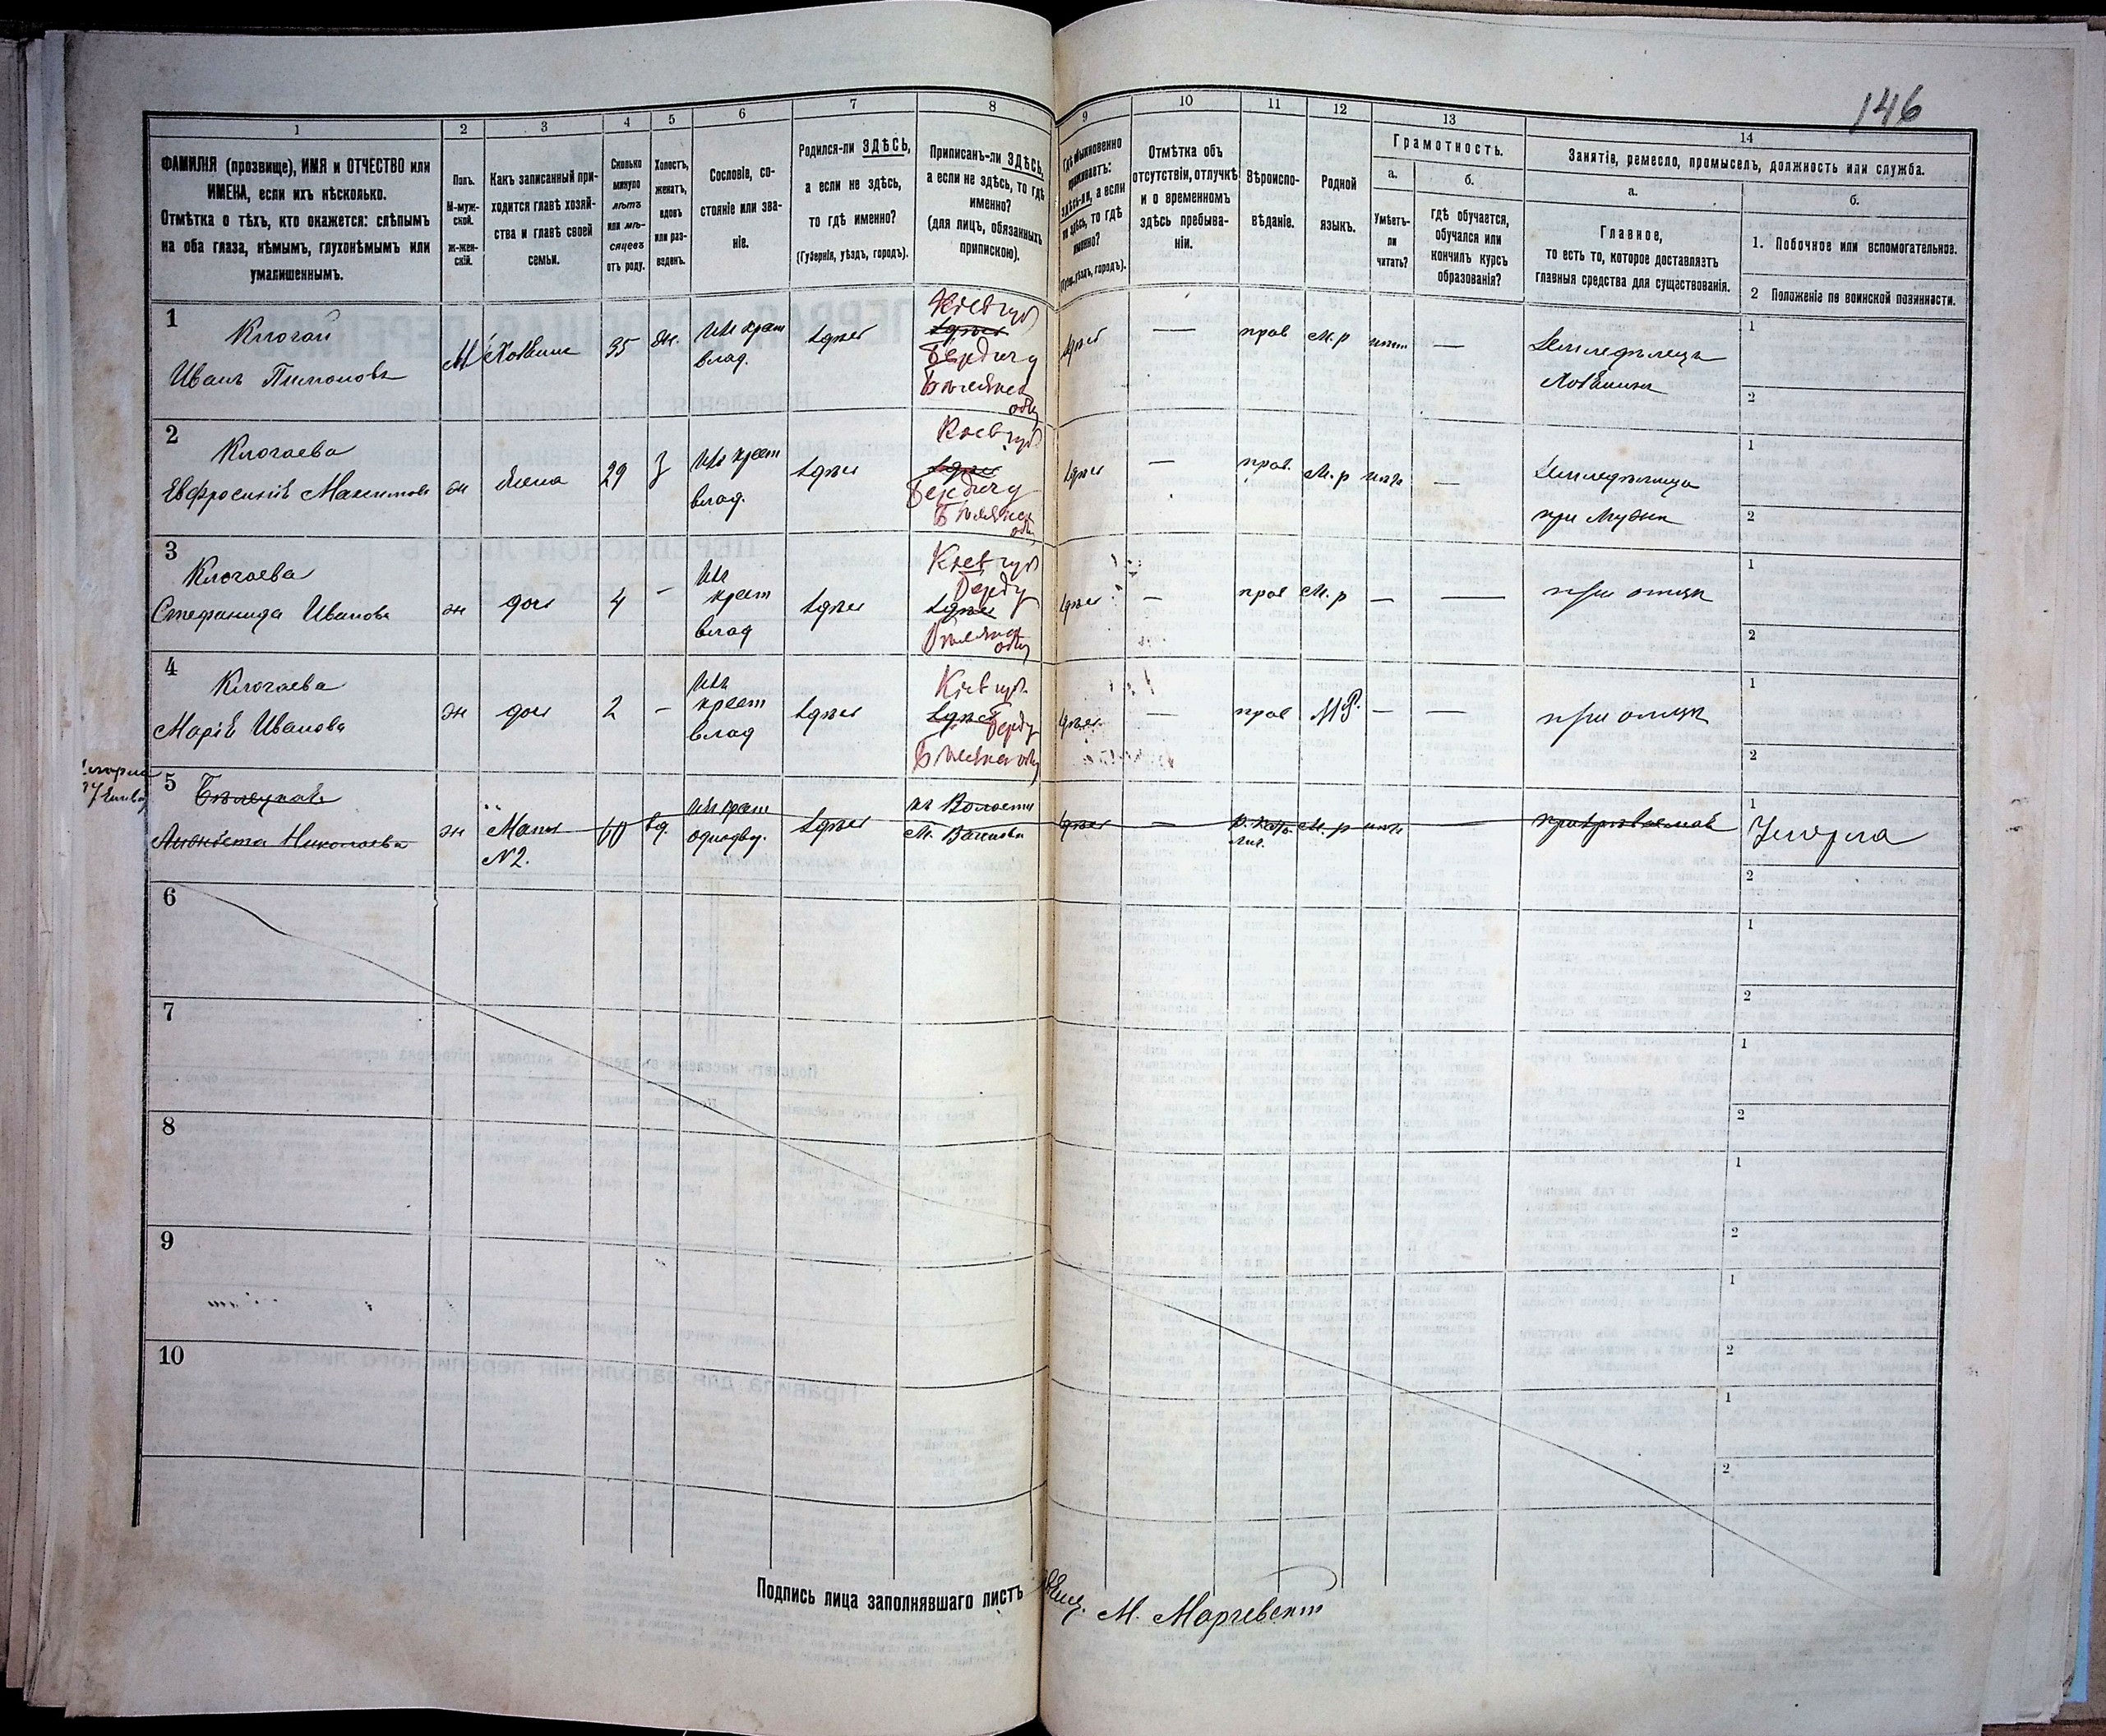 146
1
2
3
4
5
6
7
8
9
10
11
12
13
14
ФАМИЛІЯ (прозвище), ИМЯ и ОТЧЕСТВО или
ИМЕНА, если ихъ нѣсколько.
Отмѣтка о тѣхъ, кто окажется: слѣпымъ
на оба глаза, нѣмымъ, глухонѣмымъ или
умалишеннымъ.
Полъ.
М-муж-
ской.
Ж-жен-
скій.
Какъ записанный при-
ходится главѣ хозяй-
ства и главѣ своей
семьи.
Сколько
минуло
лѣтъ
или мѣ-
сяцевъ
отъ роду.
Холостъ,
женатъ,
вдовъ
или раз-
веденъ.
Сословіе, со-
стояніе или зва-
ніе.
Родился-ли ЗДѢСЬ,
а если не здѣсь,
то гдѣ именно?
(Губернія, уѣздъ, городъ).
Приписанъ-ли ЗДѢСЬ,
а если не здѣсь, то гдѣ
именно?
(для лицъ, обязанныхъ
припискою).
Гдѣ обыкновенно
проживаетъ:
здѣсь-ли, а если
не здѣсь, то гдѣ
именно?
(Губ., уѣздъ, городъ).
Отмѣтка объ
отсутствіи, отлучкѣ
и о временномъ
здѣсь пребыва-
ніи.
Вѣроиспо-
вѣданіе.
Родной
языкъ.
Грамотность.
а.
Умѣетъ-
ли
читать?
б.
гдѣ обучается,
обучался или
кончилъ курсъ
образованія?
Занятіе, ремесло, промыселъ, должность или служба.
а.
Главное,
то есть то, которое доставляетъ
главныя средства для существованія.
б.
1. Побочное или вспомогательное.
2 Положеніе по воинской повинности.
1
Клюгай
Иванъ Пимоновъ
М
Хозяинъ
35
ж.
изъ крест
влад.
здѣсь
Кіев губ
здѣсь
Бердич у
здѣсь
—
прав
М.р
нѣт
—
Земледѣлецъ
Хозяинъ
1
2
2
Клюгаева
Евфросинія Максимова
ж
жена
29
з
изъ крест
влад.
здѣсь
Кіев губ
здѣсь
Бердич у
здѣсь
—
прав.
М.р
нѣтъ
—
при мужѣ
1
2
3
Клюгаева
Стефанида Иванова
ж
дочь
4
-
изъ
крест
влад
здѣсь
Кіев губ
Берд у
здѣсь
здѣсь
—
прав
М.р
—
—
при отцѣ
1
2
4
Клюгаева
Марія Иванова
ж
дочь
2
-
изъ
крест
влад
здѣсь
Кіев губ.
здѣсь Берд у
здѣсь
—
прав
М.Р.
—
—
при отцѣ
1
2
5
Николаева
ж
Мать
№2.
60
вд.
изъ крест
однодвор.
здѣсь
къ Волости
здѣсь
—
М.р
нѣтъ
1
Умерла
2
6
1
2
7
1
2
8
1
2
9
1
2
10
1
2
Подпись лица заполнявшаго листъ